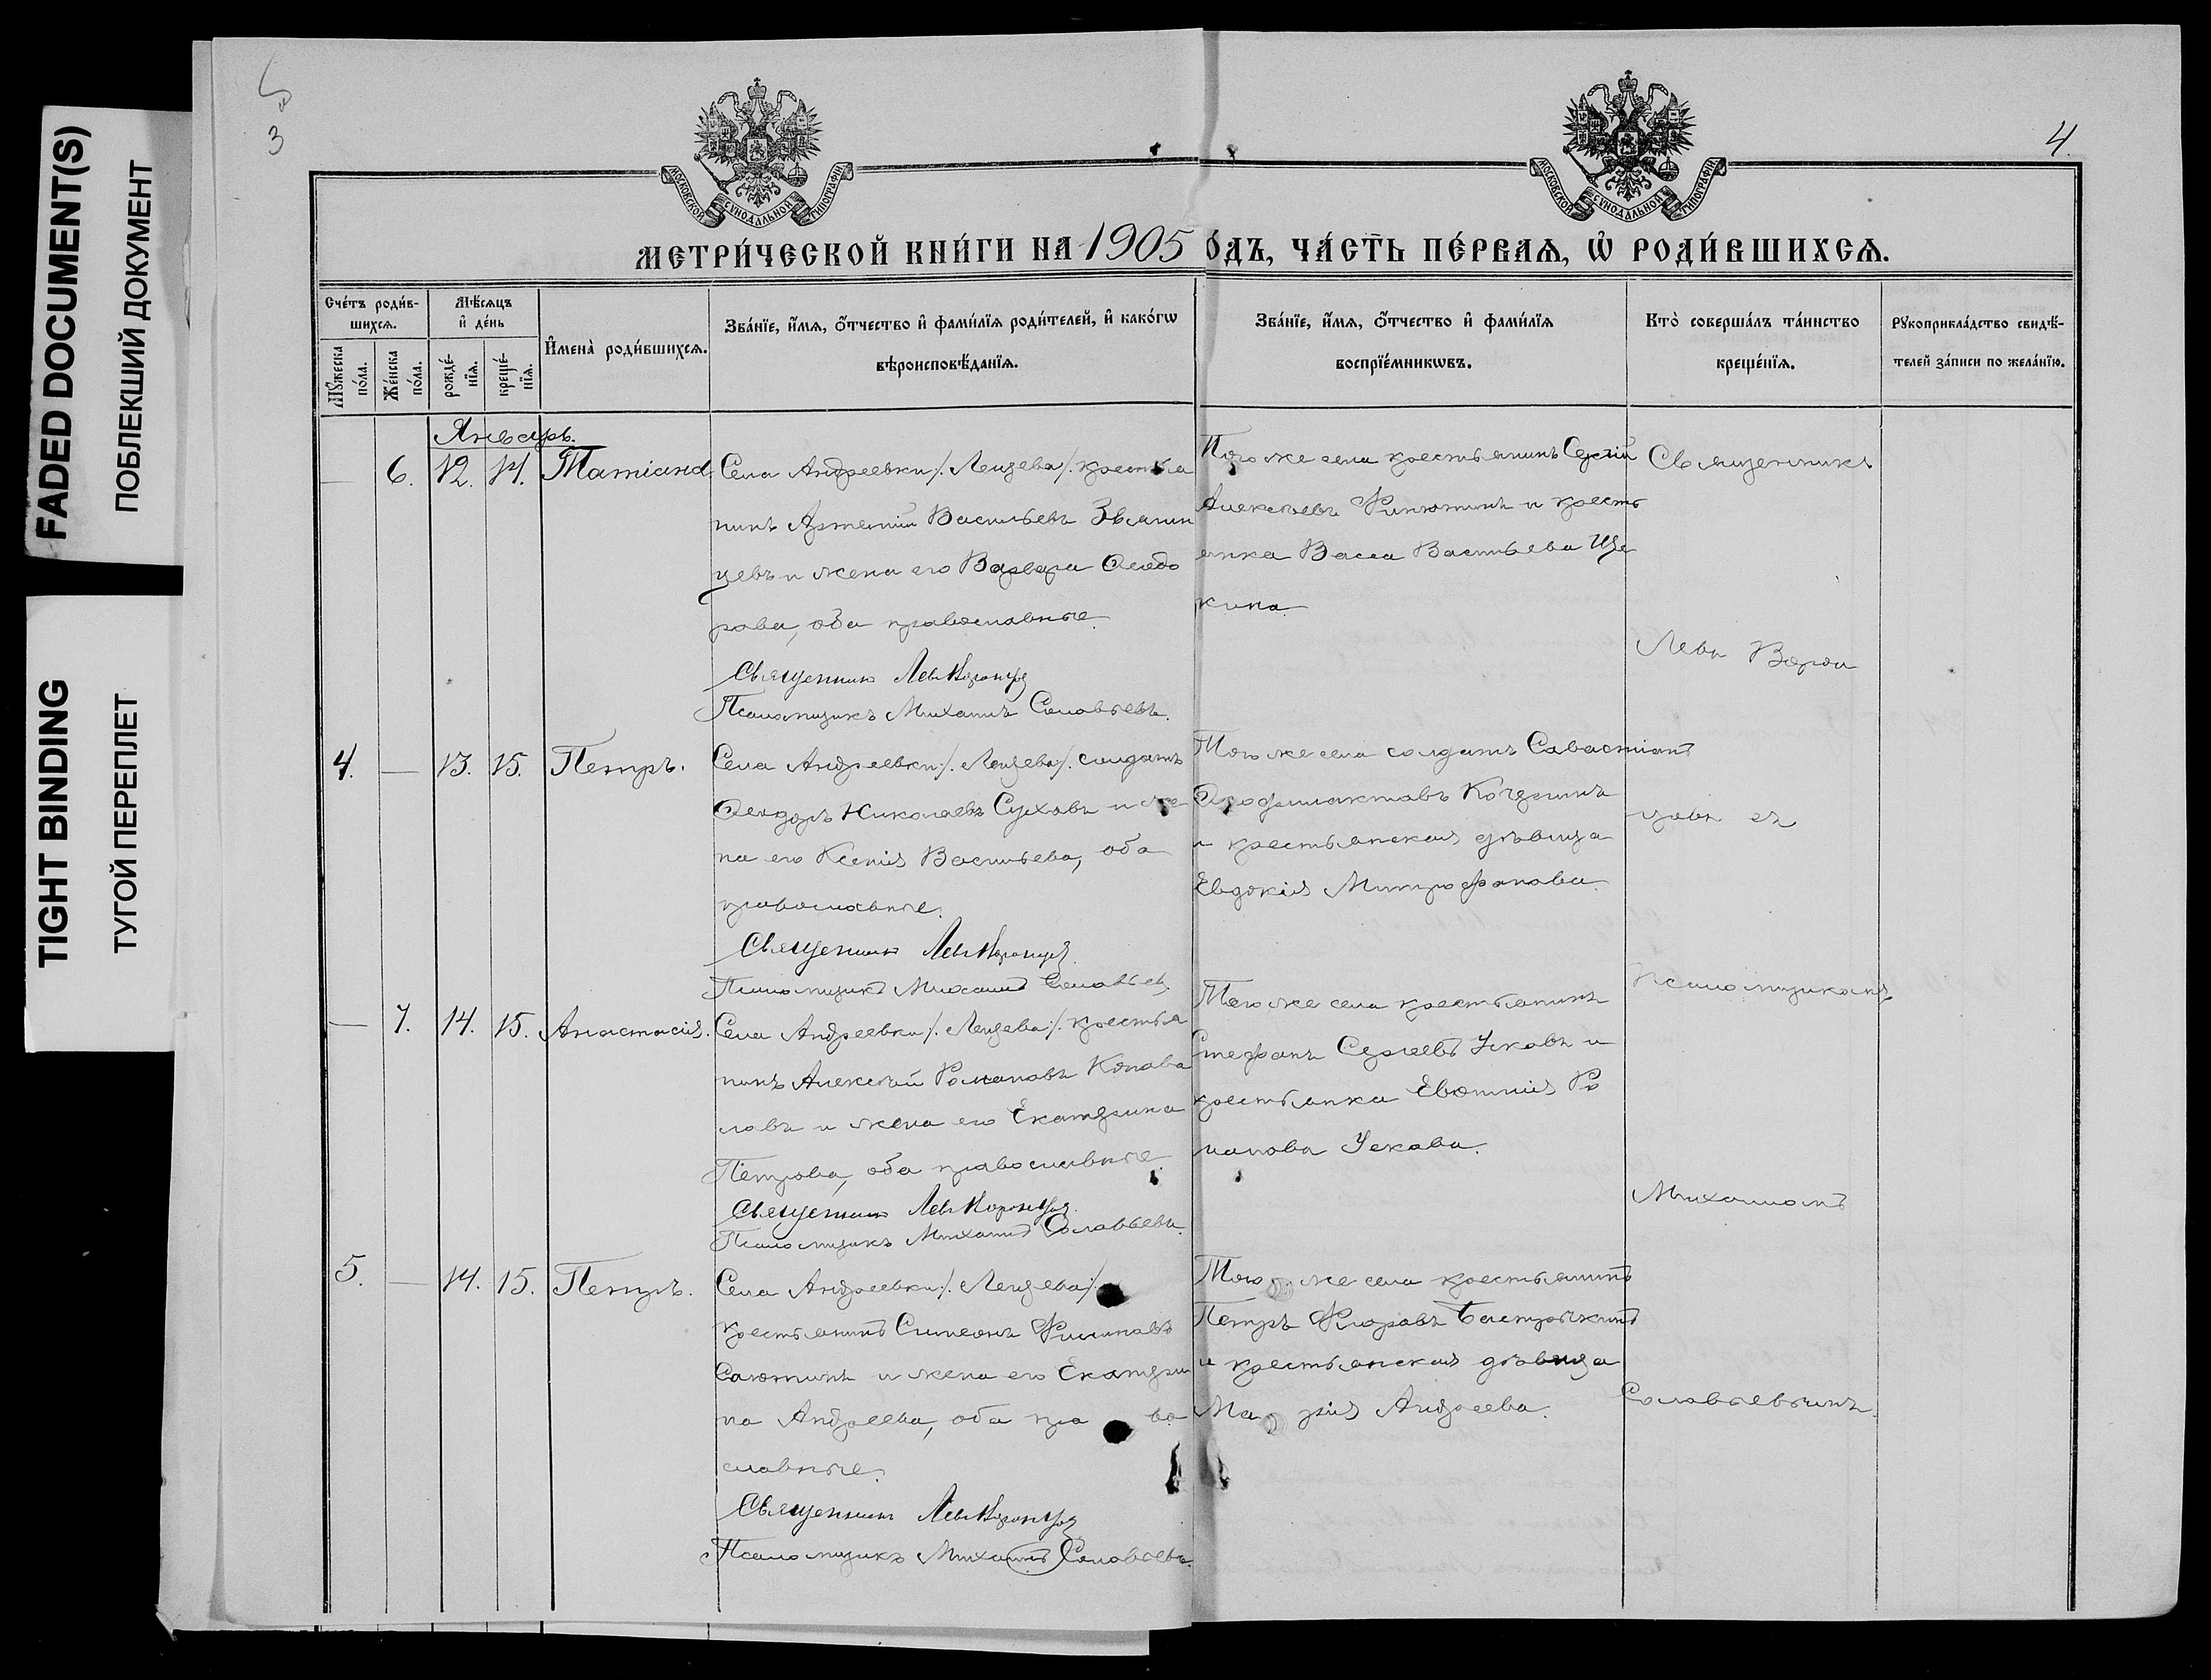 FADED DOCUMENT(S)
ПОБЛЕКШИЙ ДОКУМЕНТ
TIGHT BINDING
ТУГОЙ ПЕРЕПЛЕТ
3
4.
МОСКОВСКОЙ СУНОДАЛЬНОЙ ТИПОГРАФІИ
МОСКОВСКОЙ СУНОДАЛЬНОЙ ТИПОГРАФІИ
МЕТРИ́ЧЕСКОЙ КНИ́ГИ НА 1905 О́ДЪ, ЧА́СТЬ ПЕ́РВАѦ, Ѡ РОДИ́ВШИХСѦ.
Сче́тъ роди́в-
шихсѧ.
Мꙋжеска по́ла.
Же́нска по́ла.
Мѣ́сѧцъ
и҆ де́нь
рожде́-
нїѧ.
креще́-
нїѧ.
И҆мена̀ роди́вшихсѧ.
Зва́нїе, и҆́мѧ, ѻ҆́тчество и҆ фами́лїѧ роди́телей, и҆ како́гѡ
вѣроисповѣ́данїѧ.
Зва́нїе, и҆́мѧ, ѻ҆́тчество и҆ фами́лїѧ
воспрїе́мникѡвъ.
Кто̀ соверша́лъ та́инство
креще́нїѧ.
Рꙋкоприкла́дство свидѣ́-
телей за́писи по жела́нїю.
Январь.
— 6. 12. 14. Татіана.
Села Андреевки /. Лещева /. крестья
нинъ Артемій Васильевъ Звягин
цевъ и жена его Варвара Ѳеодо
рова, оба православные.
Священникъ Левъ Воронцов
Псаломщикъ Михаилъ Соловьевъ.
Того же села крестьянинъ Сергій
Алексѣевъ Филютинъ и кресть
янка Васса Васильева Ще
кина.
4. — 13. 15. Петръ.
Села Андреевки /. Лещева /. солдатъ
Ѳеодоръ Николаевъ Суховъ и же
на его Ксенія Васильева, оба
православные.
Священникъ Левъ Воронцов
Псаломщикъ Михаилъ Соловьевъ.
Того же села солдатъ Савастіанъ
и крестьянская дѣвица
Евдокія Митрофанова.
— 7. 14. 15. Анастасія.
Села Андреевки /. Лещева /. крестья
нинъ Алексѣй Романовъ Конова
ловъ и жена его Екатерина
Петрова, оба православные.
Священникъ Левъ Воронцов
Псаломщикъ Михаилъ Соловьевъ.
Того же села крестьянинъ
Стефанъ Сергѣевъ Усковъ и
крестьянка Евѳимія Ро
манова Ускова.
5. — 14. 15. Петръ.
Села Андреевки /. Лещева /.
крестьянинъ Симеонъ Филиповъ
Салютинъ и жена его Екатери
на Андреева, оба пра во
славные.
Священникъ Левъ Воронцов
Псаломщикъ Михаилъ Соловьевъ.
Того же села крестьянинъ
Петръ Флоровъ Бастрыкинъ
и крестьянская дѣвица
Ма рія Андреева.
Священникъ
Левъ Ворон
цовъ съ
Псаломщикомъ
Михаиломъ
Соловьевымъ.